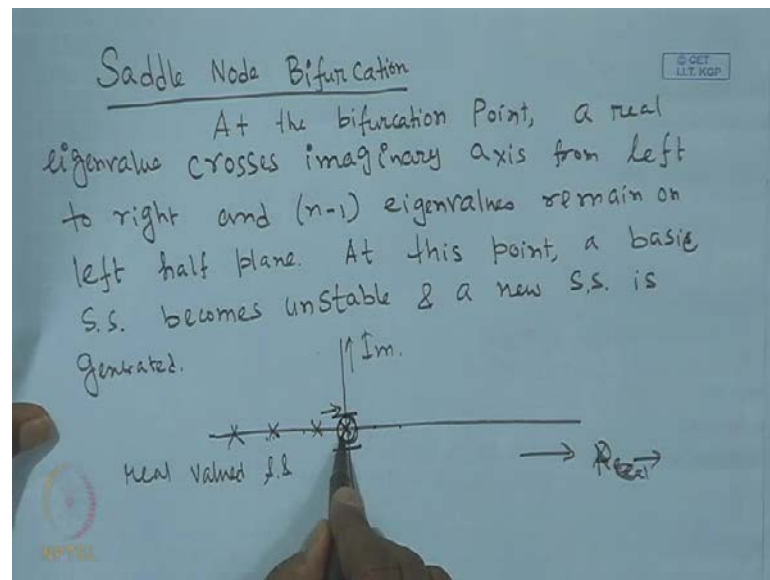 Saddle Node Bifurcation
© CET
I.I.T. KGP
At the bifurcation Point, a real
eigenvalue crosses imaginary axis from left
to right and (n-1) eigenvalues remain on
left half plane. At this point, a basic
S.S. becomes unstable & a new S.S. is
generated.
Im.
Real
real valued S.S
NPTEL